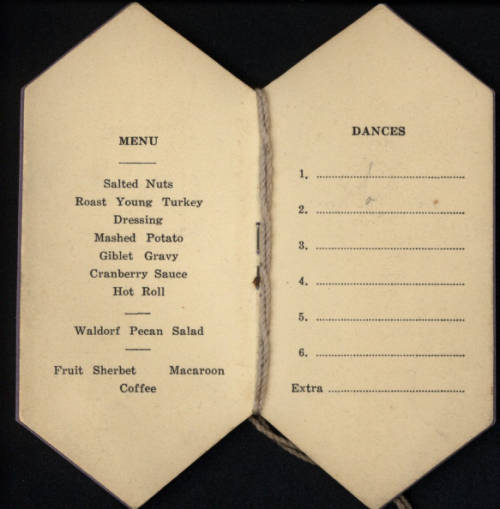 MENU
Salted Nuts
Roast Young Turkey
Dressing
Mashed Potato
Giblet Gravy
Cranberry Sauce
Hot Roll
Waldorf Pecan Salad
Fruit Sherbet Macaroon
Coffee
DANCES
1. ........................................
2. ........................................
3. ........................................
4. ........................................
5. ........................................
6. ........................................
Extra ........................................